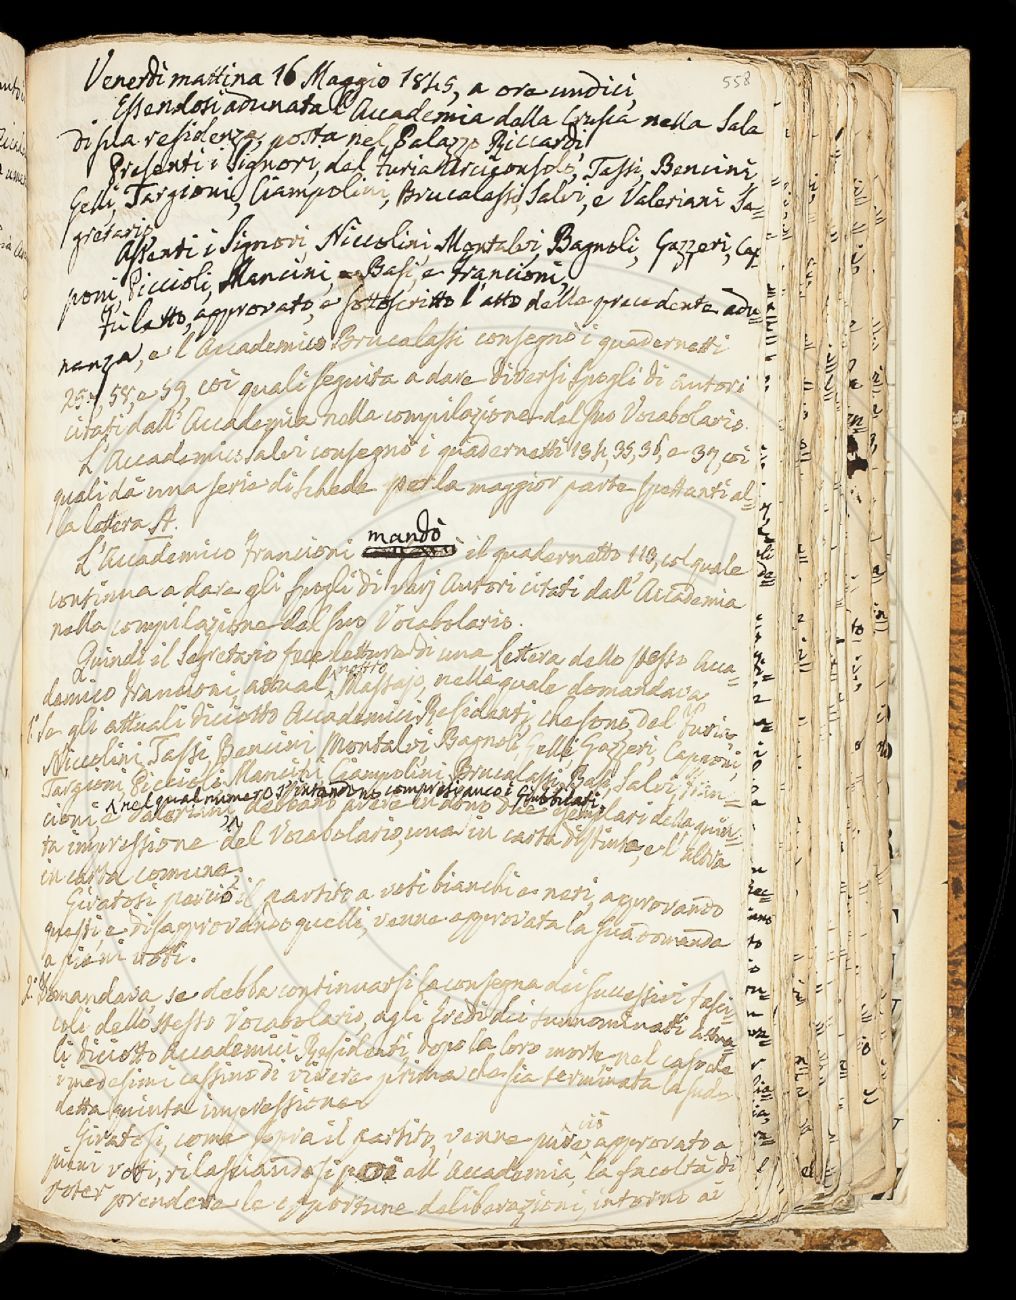 558
Venerdì mattina 16 Maggio 1845, a ore undici,
Essendosi adunata l'Accademia della Crusca nella Sala
di sua residenza, posta nel Palazzo Riccardi
Presenti i Signori, del Furia Arciconsolo, Tassi, Bencini
Gelli, Targioni, Ciampolini, Brucalassi, Salvi, e Valeriani Se=
gretario
Assenti i Signori Niccolini Montalvi, Bagnoli, Gazzeri, Cap
poni, Piccioli, Mancini, e Basi, e Francioni,
Fu letto, approvato, e sottoscritto l'atto della precedente adu
nanza, e l'Accademico Brucalassi consegnò i quadernetti
58, e 59, coi quali seguita a dare diversi spogli di Autori
citati dall'Accademia nella compilazione del suo Vocabolario.
L'Accademico Salvi consegnò i quadernetti 134, 35, 36, e 37, coi
quali dà una serie di schede per la maggior parte spettanti al
la lettera A.
L'Accademico Francioni mandò il quadernetto 113, col quale
continua a dare gli spogli di varj Autori citati dall'Accademia
nella compilazione del suo Vocabolario.
Quindi il Segretario fece lettura di una lettera dello stesso Acca=
demico Francioni, attual nostro Massajo, nella quale domandava
1.° Se gli attuali diciotto Accademici Residenti, che sono, del Furia,
Niccolini, Tassi, Bencini Montalvi, Bagnoli, Gelli, Gazzeri, Capponi,
Targioni, Piccioli, Mancini, Ciampolini, Brucalassi, Basi, Salvi, Fran=
cioni e Valeriani, nel qual numero s'intendono compresi anco i Giubbilati, debbano avere in dono due esemplari della quin=
ta impressione del Vocabolario, uno in carta distinta, e l'altro
in carta comune.
Giratosi perciò il partito a voti bianchi e neri, approvando
questi e disapprovando quelli, venne approvata la sua domanda
a pieni voti.
2.° Domandava, se debba continuarsi la consegna dei successivi fasci=
coli dello stesso Vocabolario, agli Eredi dei sunnominati attua=
li diciotto Accademici Residenti, dopo la loro morte nel caso che
i medesimi cessino di vivere prima che sia terminata la sud=
detta quinta impressione.
Giratosi, come sopra il partito, venne pure ciò approvato a
pieni voti, rilasciandosi poi all'Accademia, la facoltà di
poter prendere le opportune deliberazioni, intorno ai